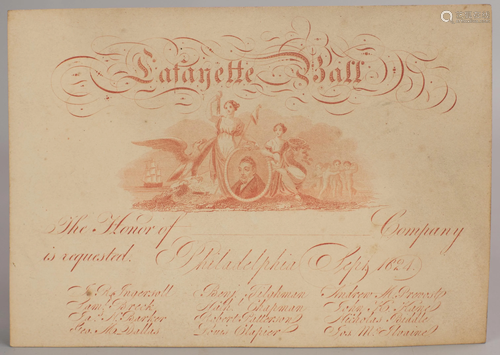 Lafayette Ball
The Honor of Company
is requested. Philadelphia Sept. 1824.
J. R. Ingersoll Benj. Tilghman Andrew M. Prevost
Saml. Breck Chapman John K. Kane
Jas. N. Barker Robert Patterson Nicholas Biddle
Geo. M. Dallas Louis Clapier Jos. M.